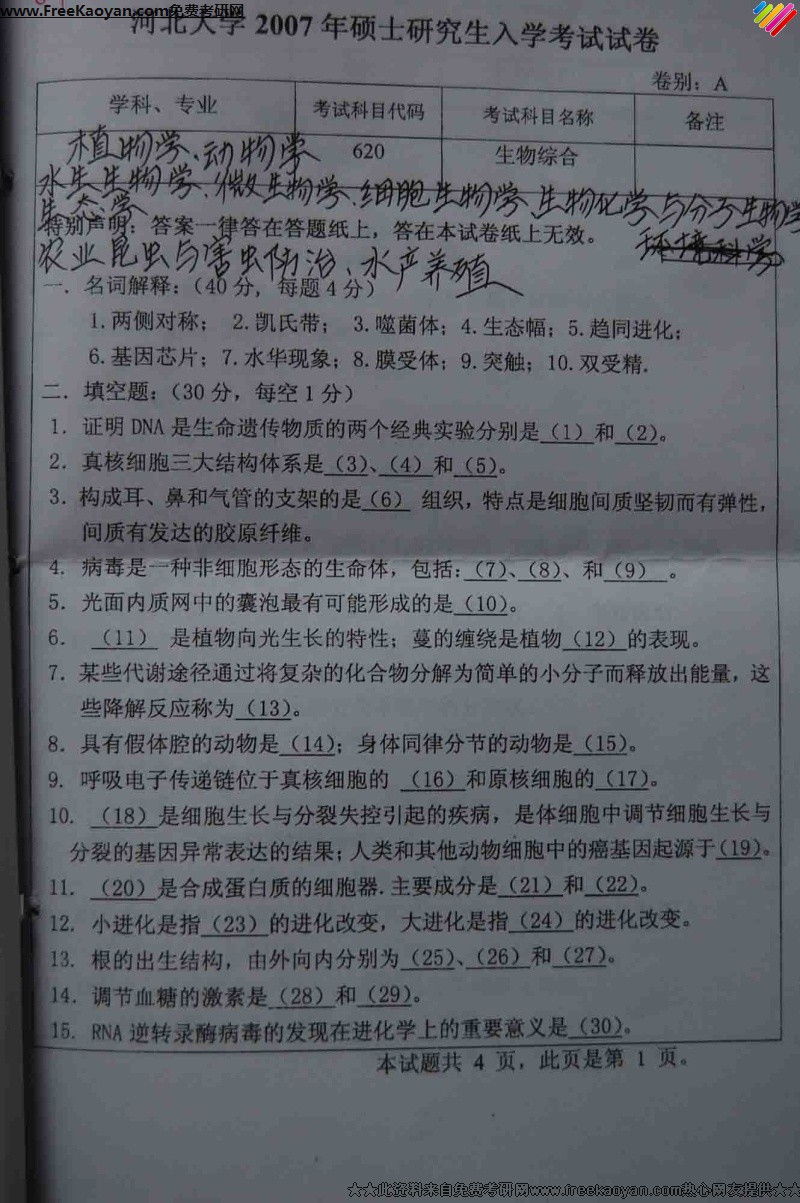 www.FreeKaoyan.com免费考研网
河北大学 2007 年硕士研究生入学考试试卷
卷别：A
学科、专业 考试科目代码 考试科目名称 备注
植物学、动物学 620 生物综合
水生生物学、微生物学、细胞生物学、生物化学与分子生物学
生态学
特别声明：答案一律答在答题纸上，答在本试卷纸上无效。 环境科学
农业昆虫与害虫防治、水产养殖
一．名词解释：（40 分，每题 4 分）
1.两侧对称； 2.凯氏带； 3.噬菌体；4.生态幅；5.趋同进化；
6.基因芯片；7.水华现象；8.膜受体；9.突触；10.双受精.
二．填空题：（30 分，每空 1 分）
1．证明 DNA 是生命遗传物质的两个经典实验分别是（1）和（2）。
2．真核细胞三大结构体系是（3）、（4）和（5）。
3．构成耳、鼻和气管的支架的是（6） 组织，特点是细胞间质坚韧而有弹性，
间质有发达的胶原纤维。
4．病毒是一种非细胞形态的生命体，包括：（7）、（8）、和（9） 。
5．光面内质网中的囊泡最有可能形成的是（10）。
6． （11） 是植物向光生长的特性；蔓的缠绕是植物（12）的表现。
7．某些代谢途径通过将复杂的化合物分解为简单的小分子而释放出能量，这
些降解反应称为（13）。
8．具有假体腔的动物是（14）；身体同律分节的动物是（15）。
9．呼吸电子传递链位于真核细胞的 （16）和原核细胞的（17）。
10．（18）是细胞生长与分裂失控引起的疾病，是体细胞中调节细胞生长与
分裂的基因异常表达的结果；人类和其他动物细胞中的癌基因起源于（19）。
11．（20）是合成蛋白质的细胞器.主要成分是（21）和（22）。
12．小进化是指（23）的进化改变，大进化是指（24）的进化改变。
13．根的出生结构，由外向内分别为（25）、（26）和（27）。
14．调节血糖的激素是（28）和（29）。
15．RNA 逆转录酶病毒的发现在进化学上的重要意义是（30）。
本试题共 4 页，此页是第 1 页。
☆☆此资料来自免费考研网www.freekaoyan.com热心网友提供☆☆